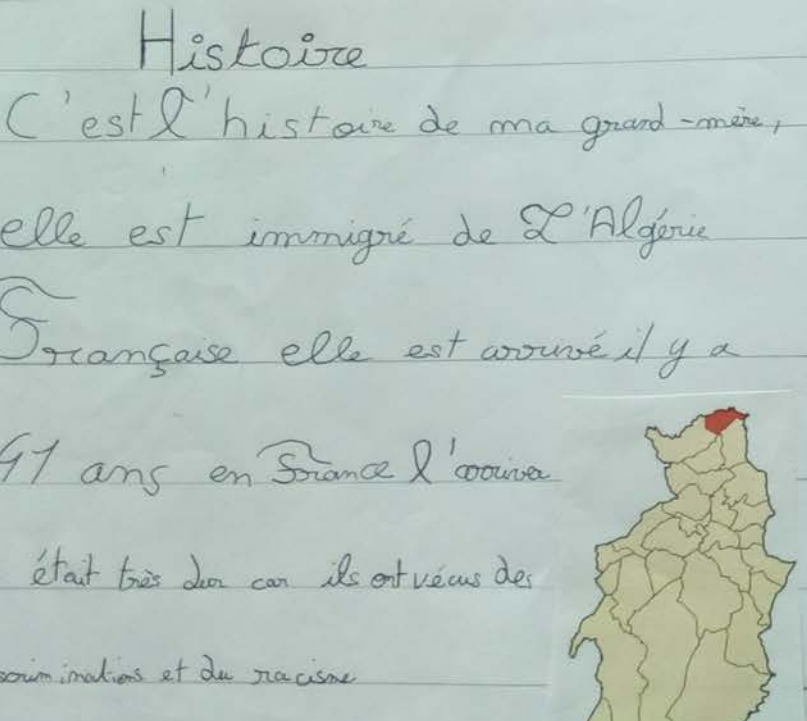 Histoire
C'est l'histoire de ma grand-mère,
elle est immigré de L'Algérie
Française elle est arrivé il y a
41 ans en France l'arriver
était très dur car ils ont vécus des
scriminations et du racisme